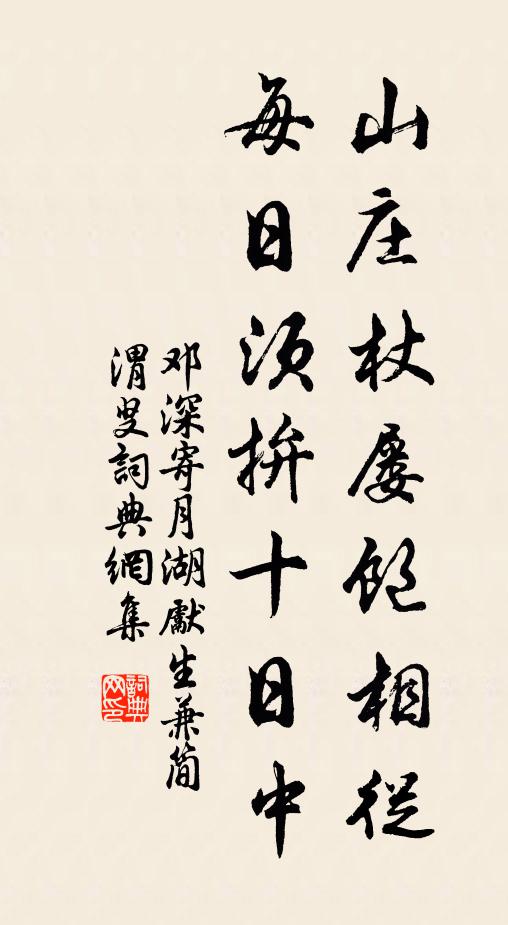 山庄杖屦飽相從
每日須拚十日中
邓深寄月湖獻生兼简
渭叟詞典網集
詞典网印